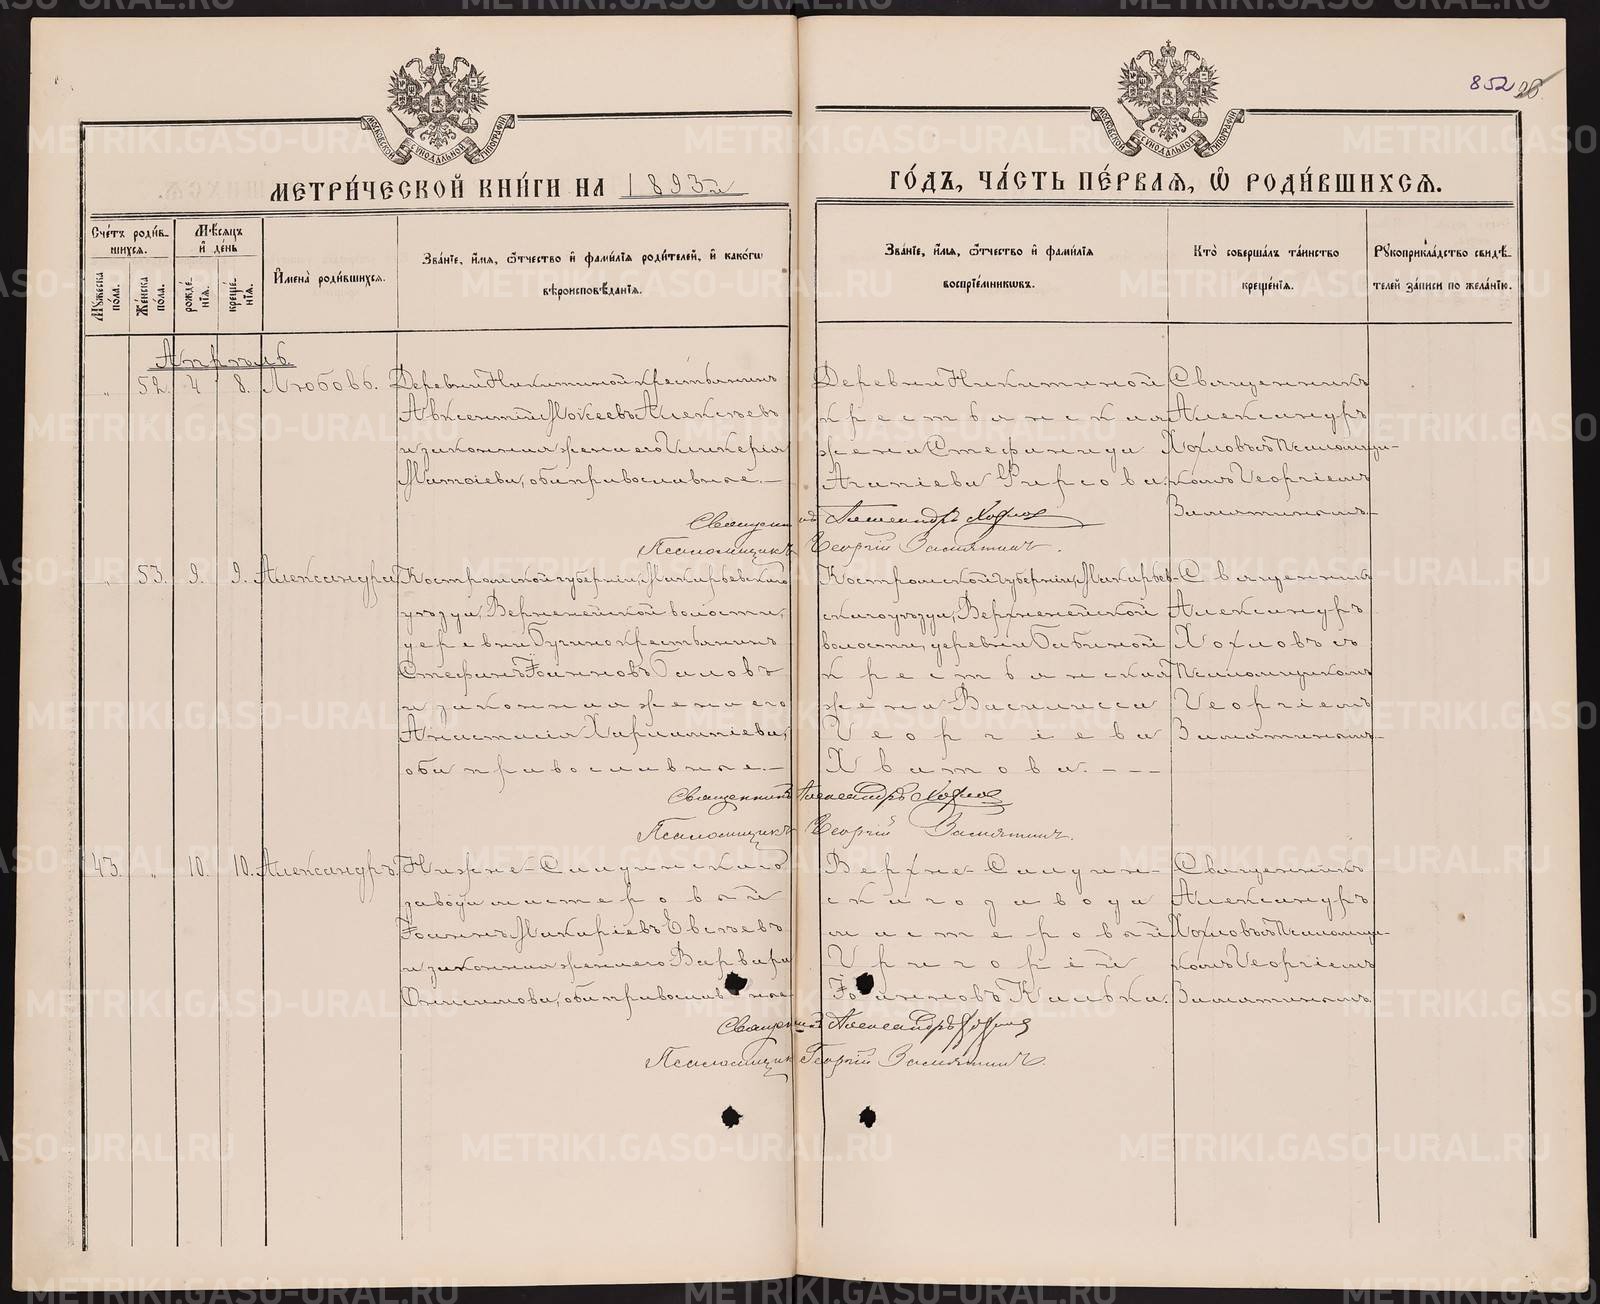 852
МЕТРИ́ЧЕСКОЙ КНИ́ГИ НА 1893й
ГО́ДЪ, ЧА́СТЬ ПЕ́РВАѦ, Ѡ҆ РОДИ́ВШИХСѦ.
Сче́тъ роди́вшихсѧ.
Мꙋ́жеска по́ла.
Же́нска по́ла.
Мѣ́сяцъ и҆ де́нь
рожде́нїѧ.
креще́нїѧ.
И҆мена̀ роди́вшихсѧ.
Зва́нїе, и҆́мѧ, ѻ҆́тчество и҆ фами́лїѧ роди́телей, и҆ како́гѡ
вѣроисповѣ́данїѧ.
Зва́нїе, и҆́мѧ, ѻ҆́тчество и҆ фами́лїѧ
воспрїе́мникѡвъ.
Кто̀ соверша́лъ та́инство
креще́нїѧ.
Рꙋкоприкла́дство свидѣ́-
телей за́писи по жела́нїю.
Апрѣль
„ 52. 4 8. Любовь.
Деревни Никитиной крестьянинъ
Авксентій Моисеевъ Алексѣевъ
и законная жена его Гликерія
Матѳіева, оба православные.—
Деревни Никитиной
крестьянская
жена Стефанида
Агапіева Фирсова.
Священникъ
Александръ
Хохловъ съ Псаломщи-
комъ Георгіемъ
Замятинымъ.
Священникъ Александръ Хохлов
Псаломщикъ Георгій Замятинъ.
„ 53. 9. 9. Александра
Костромской губерніи, Макарьевскаго
уѣзда, Верхненейской волости,
деревни Бучино крестьянинъ
Стефанъ Іоанновъ Галовъ
и законная жена его
Анастасія Харлампіева,
оба православные.—
Костромской губерніи, Макарьев-
скаго уѣзда, Верхненейской
волости, деревни Бабиной
крестьянская
жена Василисса
Георгіева
Хватова. — — —
Священникъ
Александръ
Хохловъ съ
Псаломщикомъ
Георгіемъ
Замятинымъ.
Священникъ Александръ Хохлов
Псаломщикъ Георгій Замятинъ.
43. „ 10. 10. Александръ.
Нижне-Салдинскаго
завода мастеровой
Іоаннъ Макаріевъ Евсѣевъ
и законная жена его Варвара
Онисимова, оба православные
Верхне-Салдин-
скаго завода
мастеровой
Григорій
Іоанновъ Калька.
Священникъ
Александръ
Хохловъ съ Псаломщи-
комъ Георгіемъ
Замятинымъ
Священникъ Александръ Хохлов
Псаломщикъ Георгій Замятинъ.
METRIKI.GASO-URAL.RU